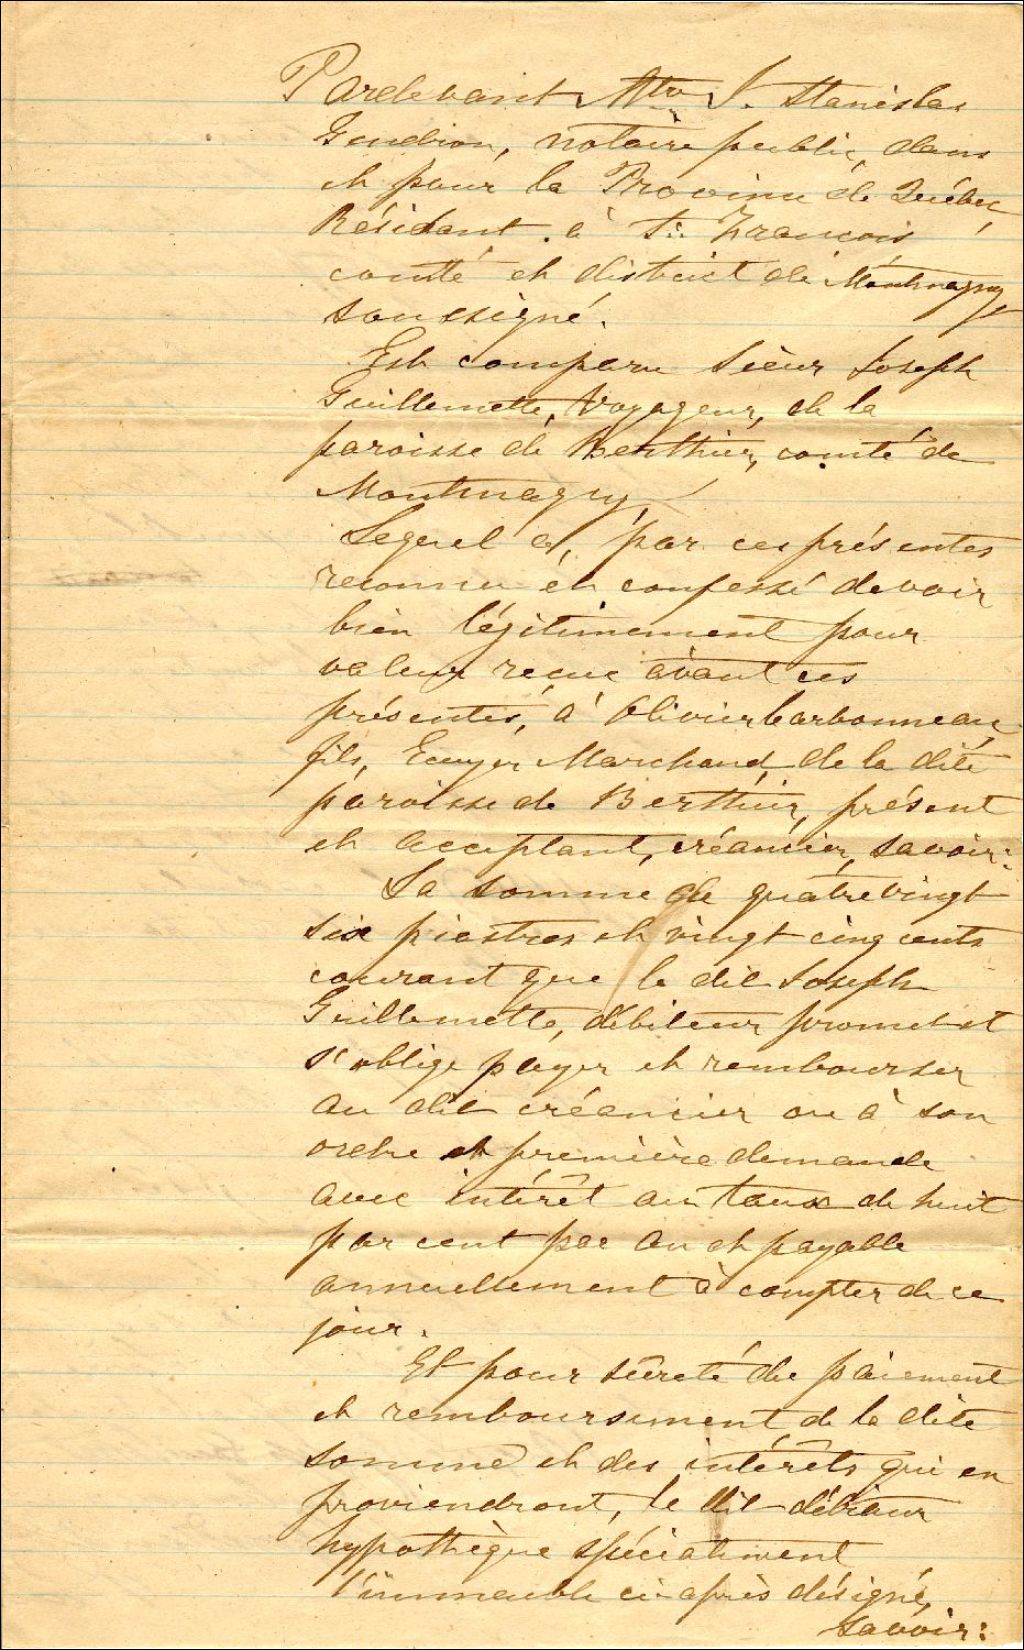 Pardevant Mtre J. Stanislas
Gendron, notaire public, dans
et pour la Province de Québec,
Résidant à St. François
comté et district de Montmagny
soussigné.
Est comparu Sieur Joseph
Guillemette, Voyageur, de la
paroisse de Berthier, comté de
Montmagny
Lequel a, par ces présentes
reconnu et confessé devoir
bien légitimement pour
valeur reçue avant ces
présentes, à Olivier Carbonneau,
fils, Ecuyer Marchand, de la dite
paroisse de Berthier, présent
et acceptant, créancier, savoir:
La somme de quatrevingt
six piastres et vingt cinq cents
courant que le dit Joseph
Guillemette, débiteur promet et
s'oblige payer et rembourser
au dit créancier ou à son
ordre et première demande
avec intérêt au taux de huit
par cent par an et payable
annuellement à compter de ce
jour.
Et pour sûreté du paiement
et remboursement de la dite
somme et des intérêts qui en
proviendront, le dit débiteur
hypothèque spécialement
l'immeuble ci-après désigné,
savoir: